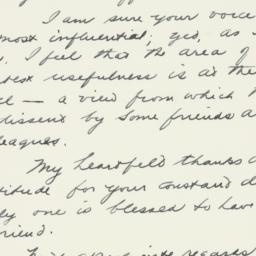 I am sure your voice
most influential; yes, as
I feel that the area of
best usefulness is at the
— a view from which
dissent by some friends a
leagues.
My heartfelt thanks a
titude for your constant d
by one is blessed to have
riend.
regards